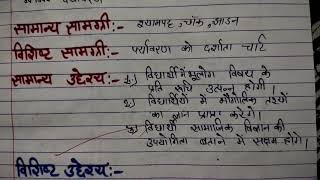 सामान्य सामग्री:- श्यामपट्ट, चॉक, झाडन
विशिष्ट सामग्री:- पर्यावरण को दर्शाता चार्ट
सामान्य उद्देश्य:- 1.) विद्यार्थी में भूगोल विषय के
प्रति रुचि उत्पन्न होगी।
2.) विद्यार्थियों में भौगोलिक तथ्यों
का ज्ञान प्राप्त करेंगे।
3.) विद्यार्थी सामाजिक विज्ञान की
उपयोगिता बताने में सक्षम होंगे।
विशिष्ट उद्देश्य:-